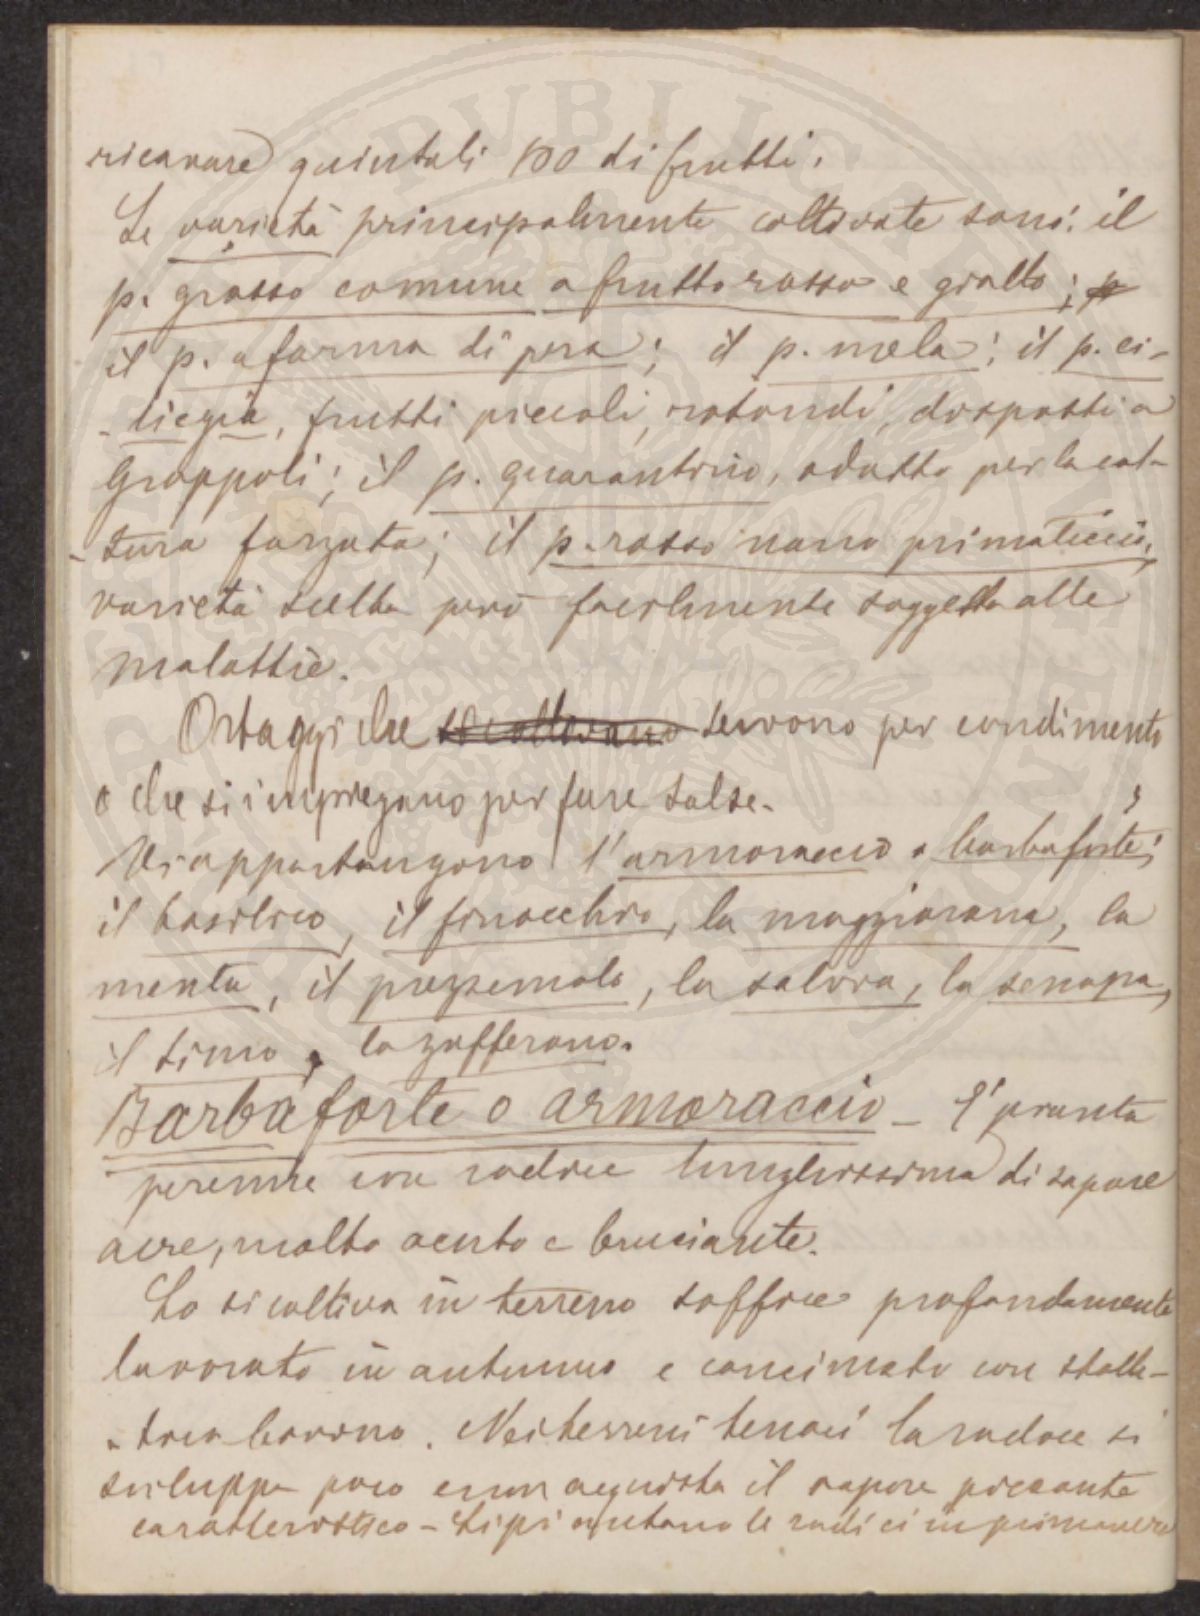 ricavare quintali 100 di frutti.
Le varietà principalmente coltivate sono: il
p. grosso comune a frutto rosso e giallo;
il p. a forma di pera; il p. mela; il p. ci-
-liegia, frutti piccoli, rotondi, disposti a
grappoli; il p. quarantino, adatto per la col-
-tura forzata; il p. rosso nano primaticcio,
varietà scelta però facilmente soggetta alle
malattie.
Ortaggi che si coltivano servono per condimento
o che si impiegano per fare salse.
Vi appartengono l'armoraccio o barbaforte;
il basilico, il finocchio, la maggiorana, la
menta, il prezzemolo, la salvia, la senapa,
il timo, lo zafferano.
Barbaforte o armoraccio - È pianta
perenne con radice lunghissima di sapore
acre, molto acuto e bruciante.
Lo si coltiva in terreno soffice profondamente
lavorato in autunno e concimato con stalla-
-tico bovino. Nei terreni tenaci la radice si
sviluppa poco e non acquista il sapore piccante
caratteristico - Si piantano le radici in primavera
PUBLICAE